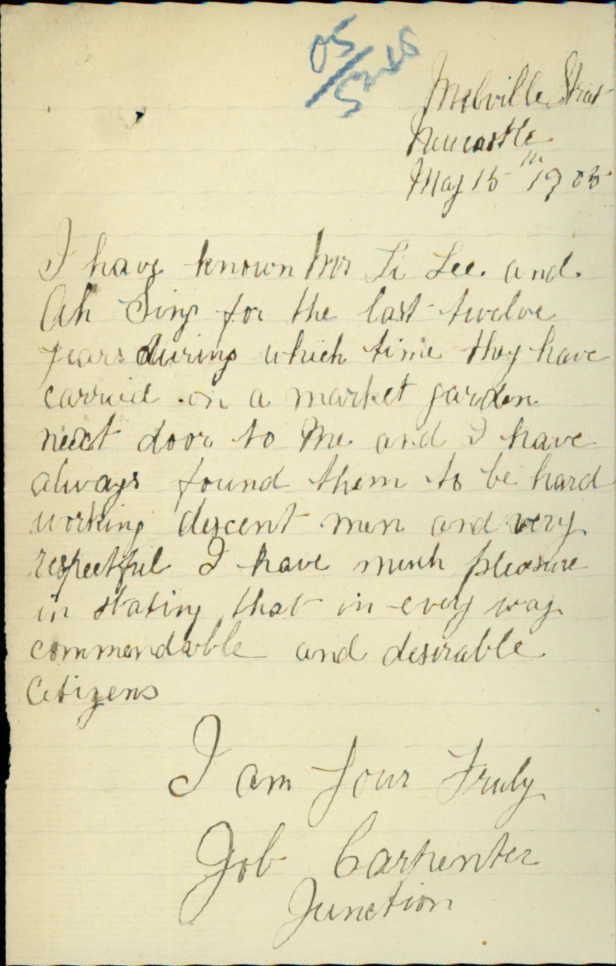 05/5245
Melville Street
Newcastle
May 15th 1905
I have known Mr Li Lee. and.
Ah Sing for the last twelve
years during which time they have
carried on a market garden
next door to Me and I have
always found them to be hard
working descent men and very
respectful I have much pleasure
in stating that in every way
commendable and desirable
Citizens
I am Your Truly
Job Carpenter
Junction